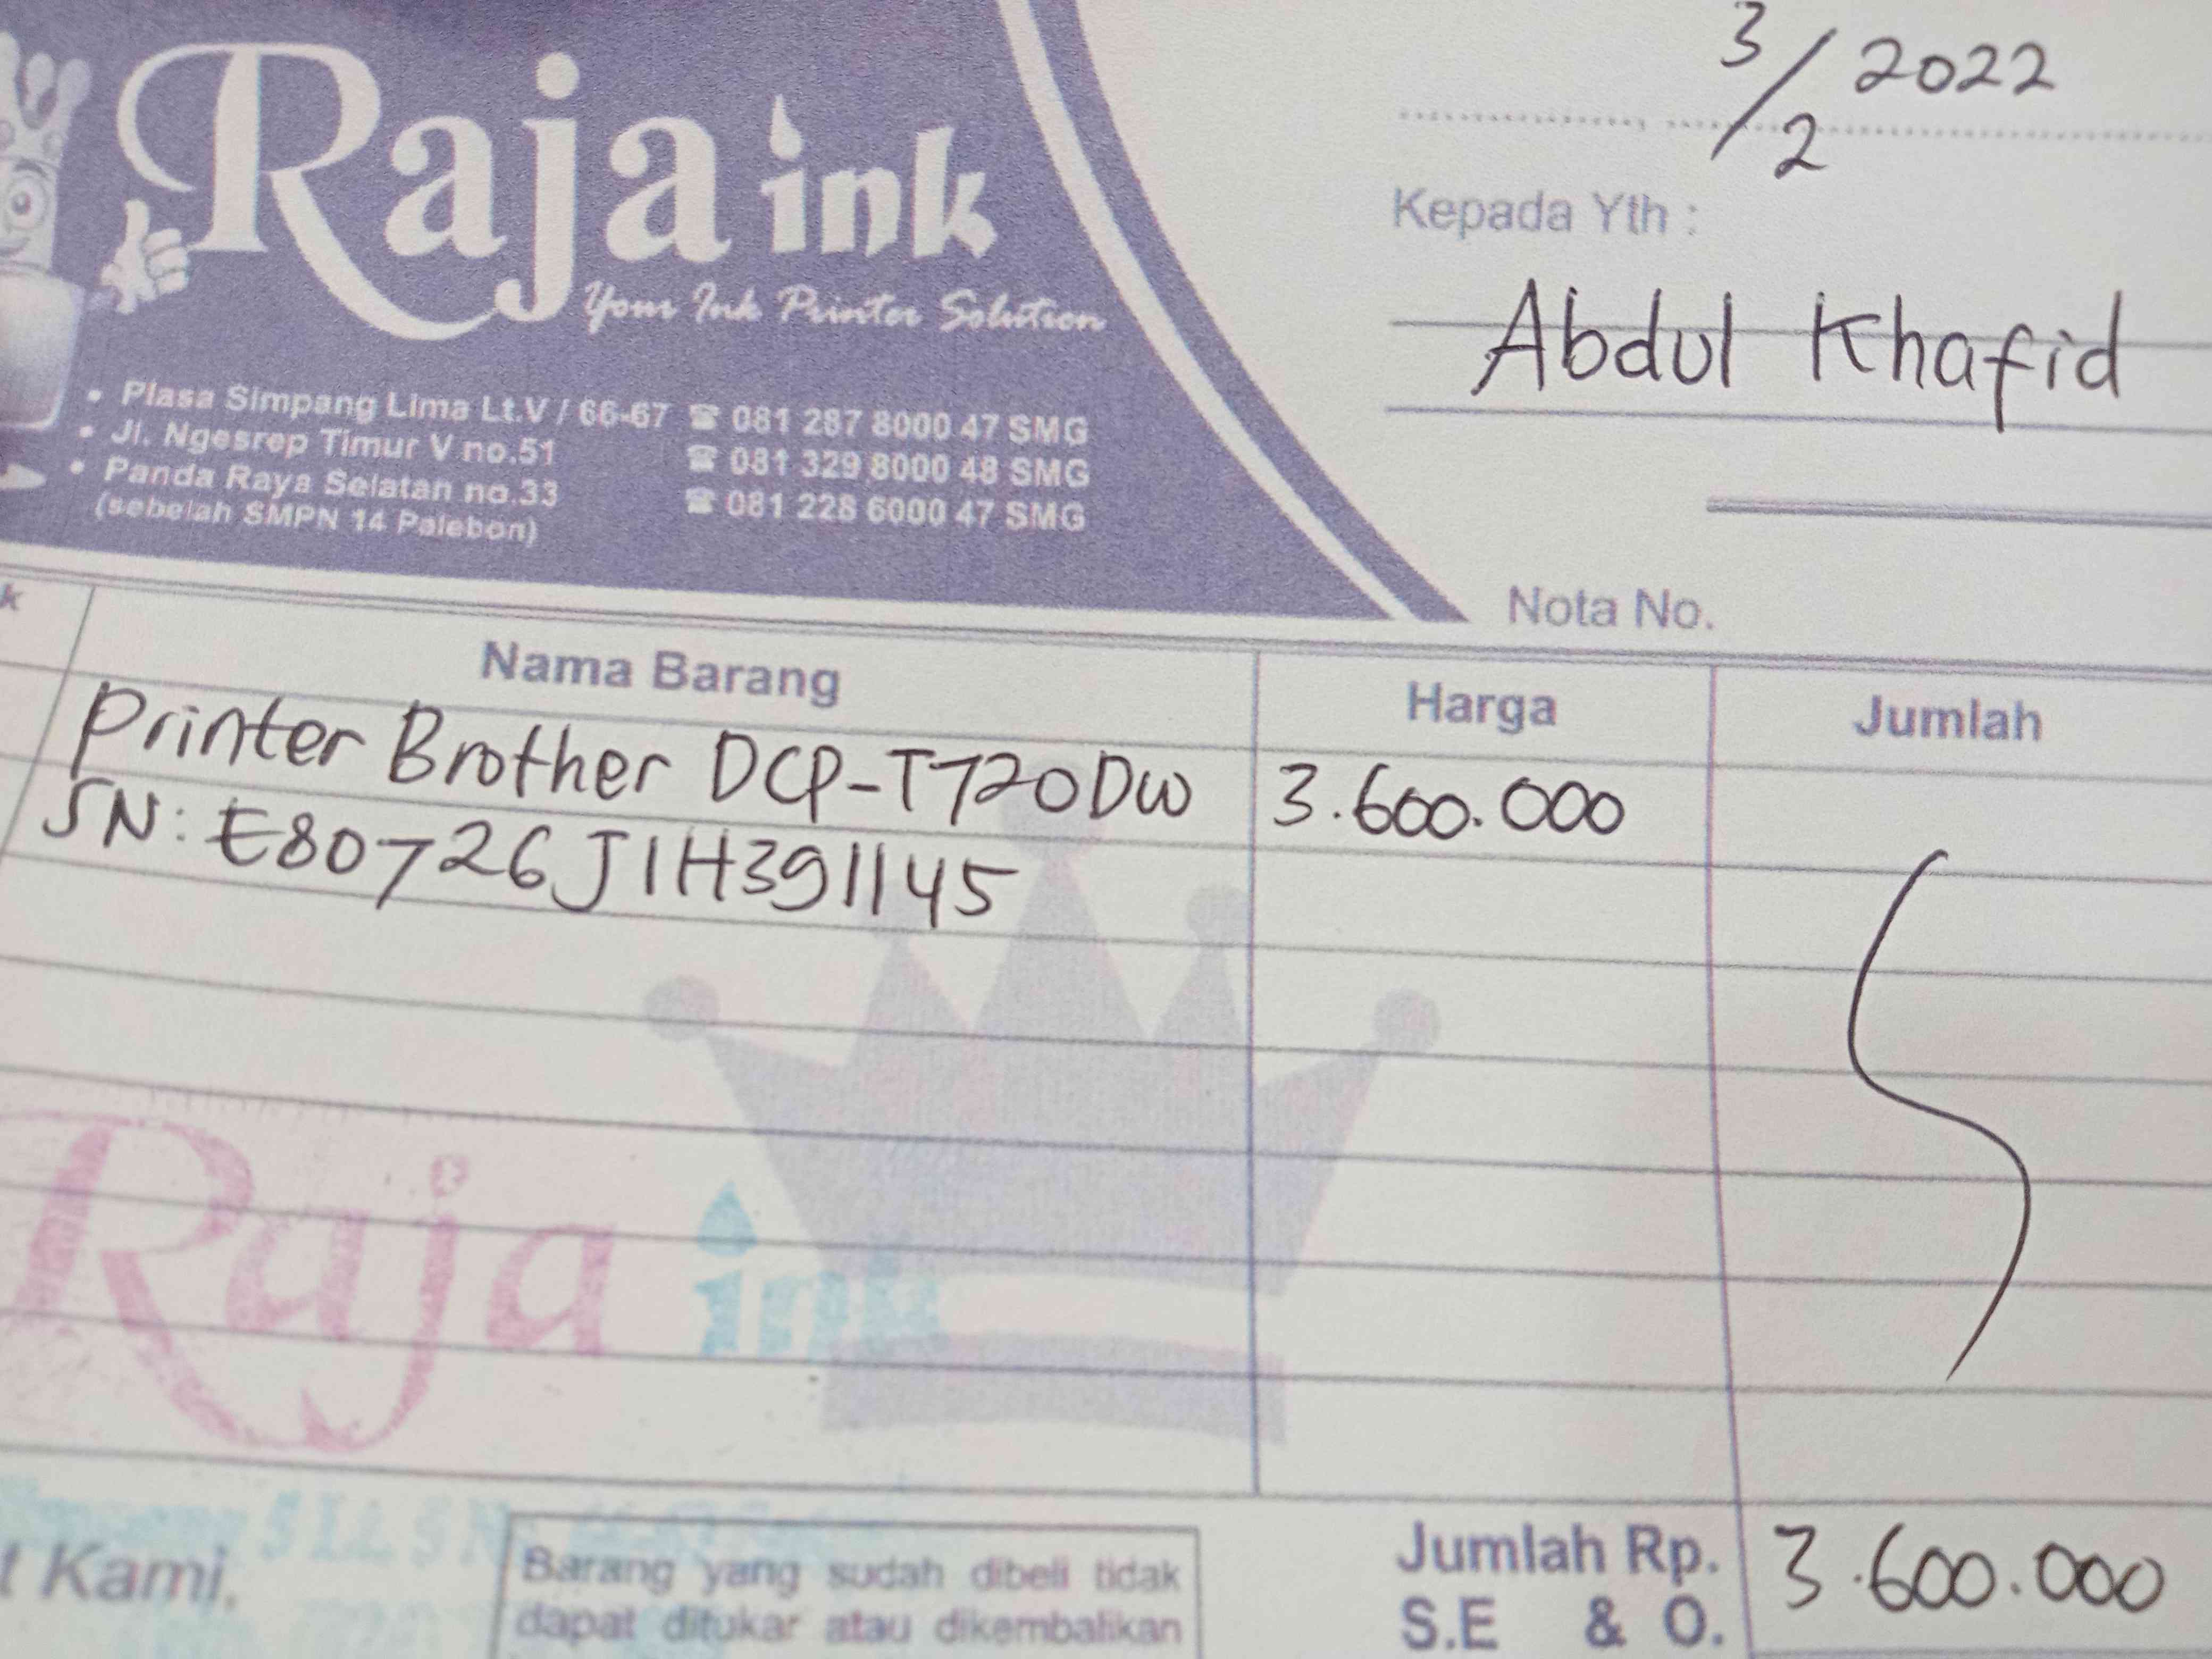 Raja ink
Your Ink Printer Solution
• Plasa Simpang Lima Lt.V / 66-67 ☎ 081 287 8000 47 SMG
• Jl. Ngesrep Timur V no.51 ☎ 081 329 8000 48 SMG
• Panda Raya Selatan no.33 ☎ 081 228 6000 47 SMG
(sebelah SMPN 14 Palebon)
3/2 2022
Kepada Yth :
Abdul Khafid
Nota No.
k Nama Barang Harga Jumlah
Printer Brother DCP-T720DW 3.600.000
SN: E80726J1H391145
Raja ink
t Kami,
Barang yang sudah dibeli tidak
dapat ditukar atau dikembalikan
Jumlah Rp. 3.600.000
S.E & O.